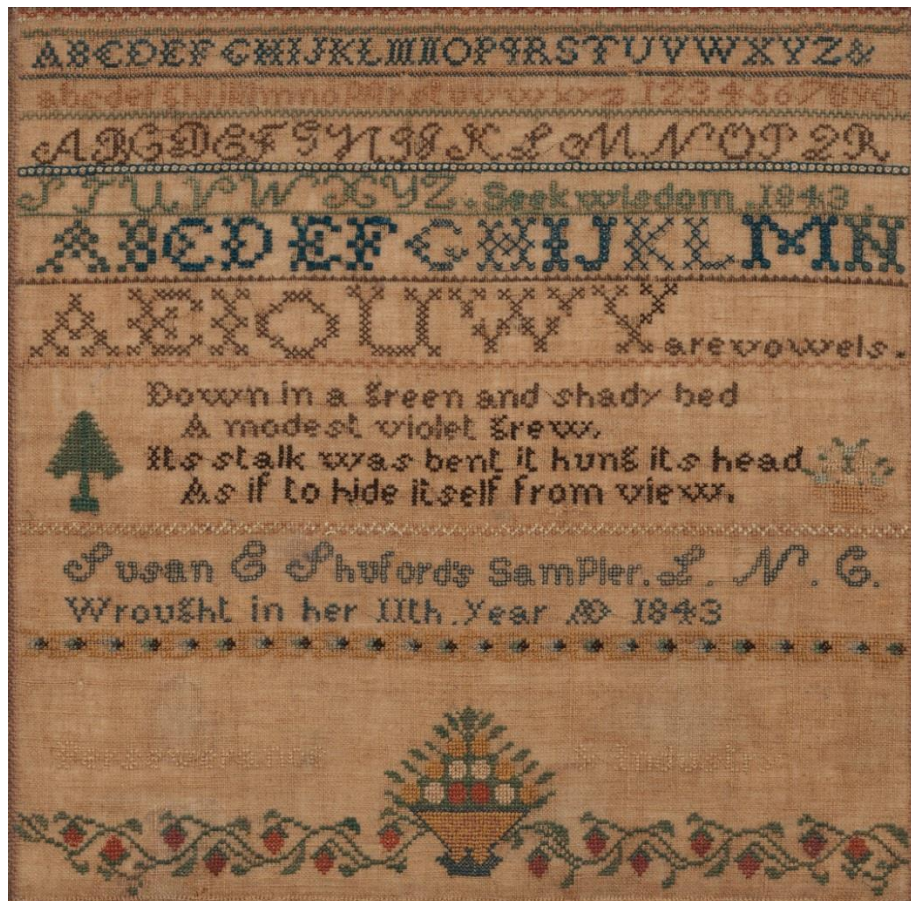 ABCDEFGHIJKLMNOPQRSTUVWXYZ&
abcdefghijklmnopqrstuvwxyz 1234567890
ABCDEFGHIJKLMNOPQR
STUVWXYZ. Seek wisdom. 1843.
ABCDEFGHIJKLMN
AEIOUWY are vowels.
Down in a green and shady bed
A modest violet grew.
Its stalk was bent it hung its head
As if to hide itself from view.
Susan E Shuford's Sampler. L. N. C.
Wrought in her 11th. Year AD 1843